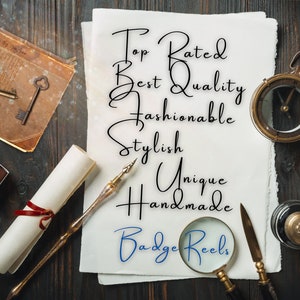 Top Rated
Best Quality
Fashionable
Stylish
Unique
Handmade
Badge Reels